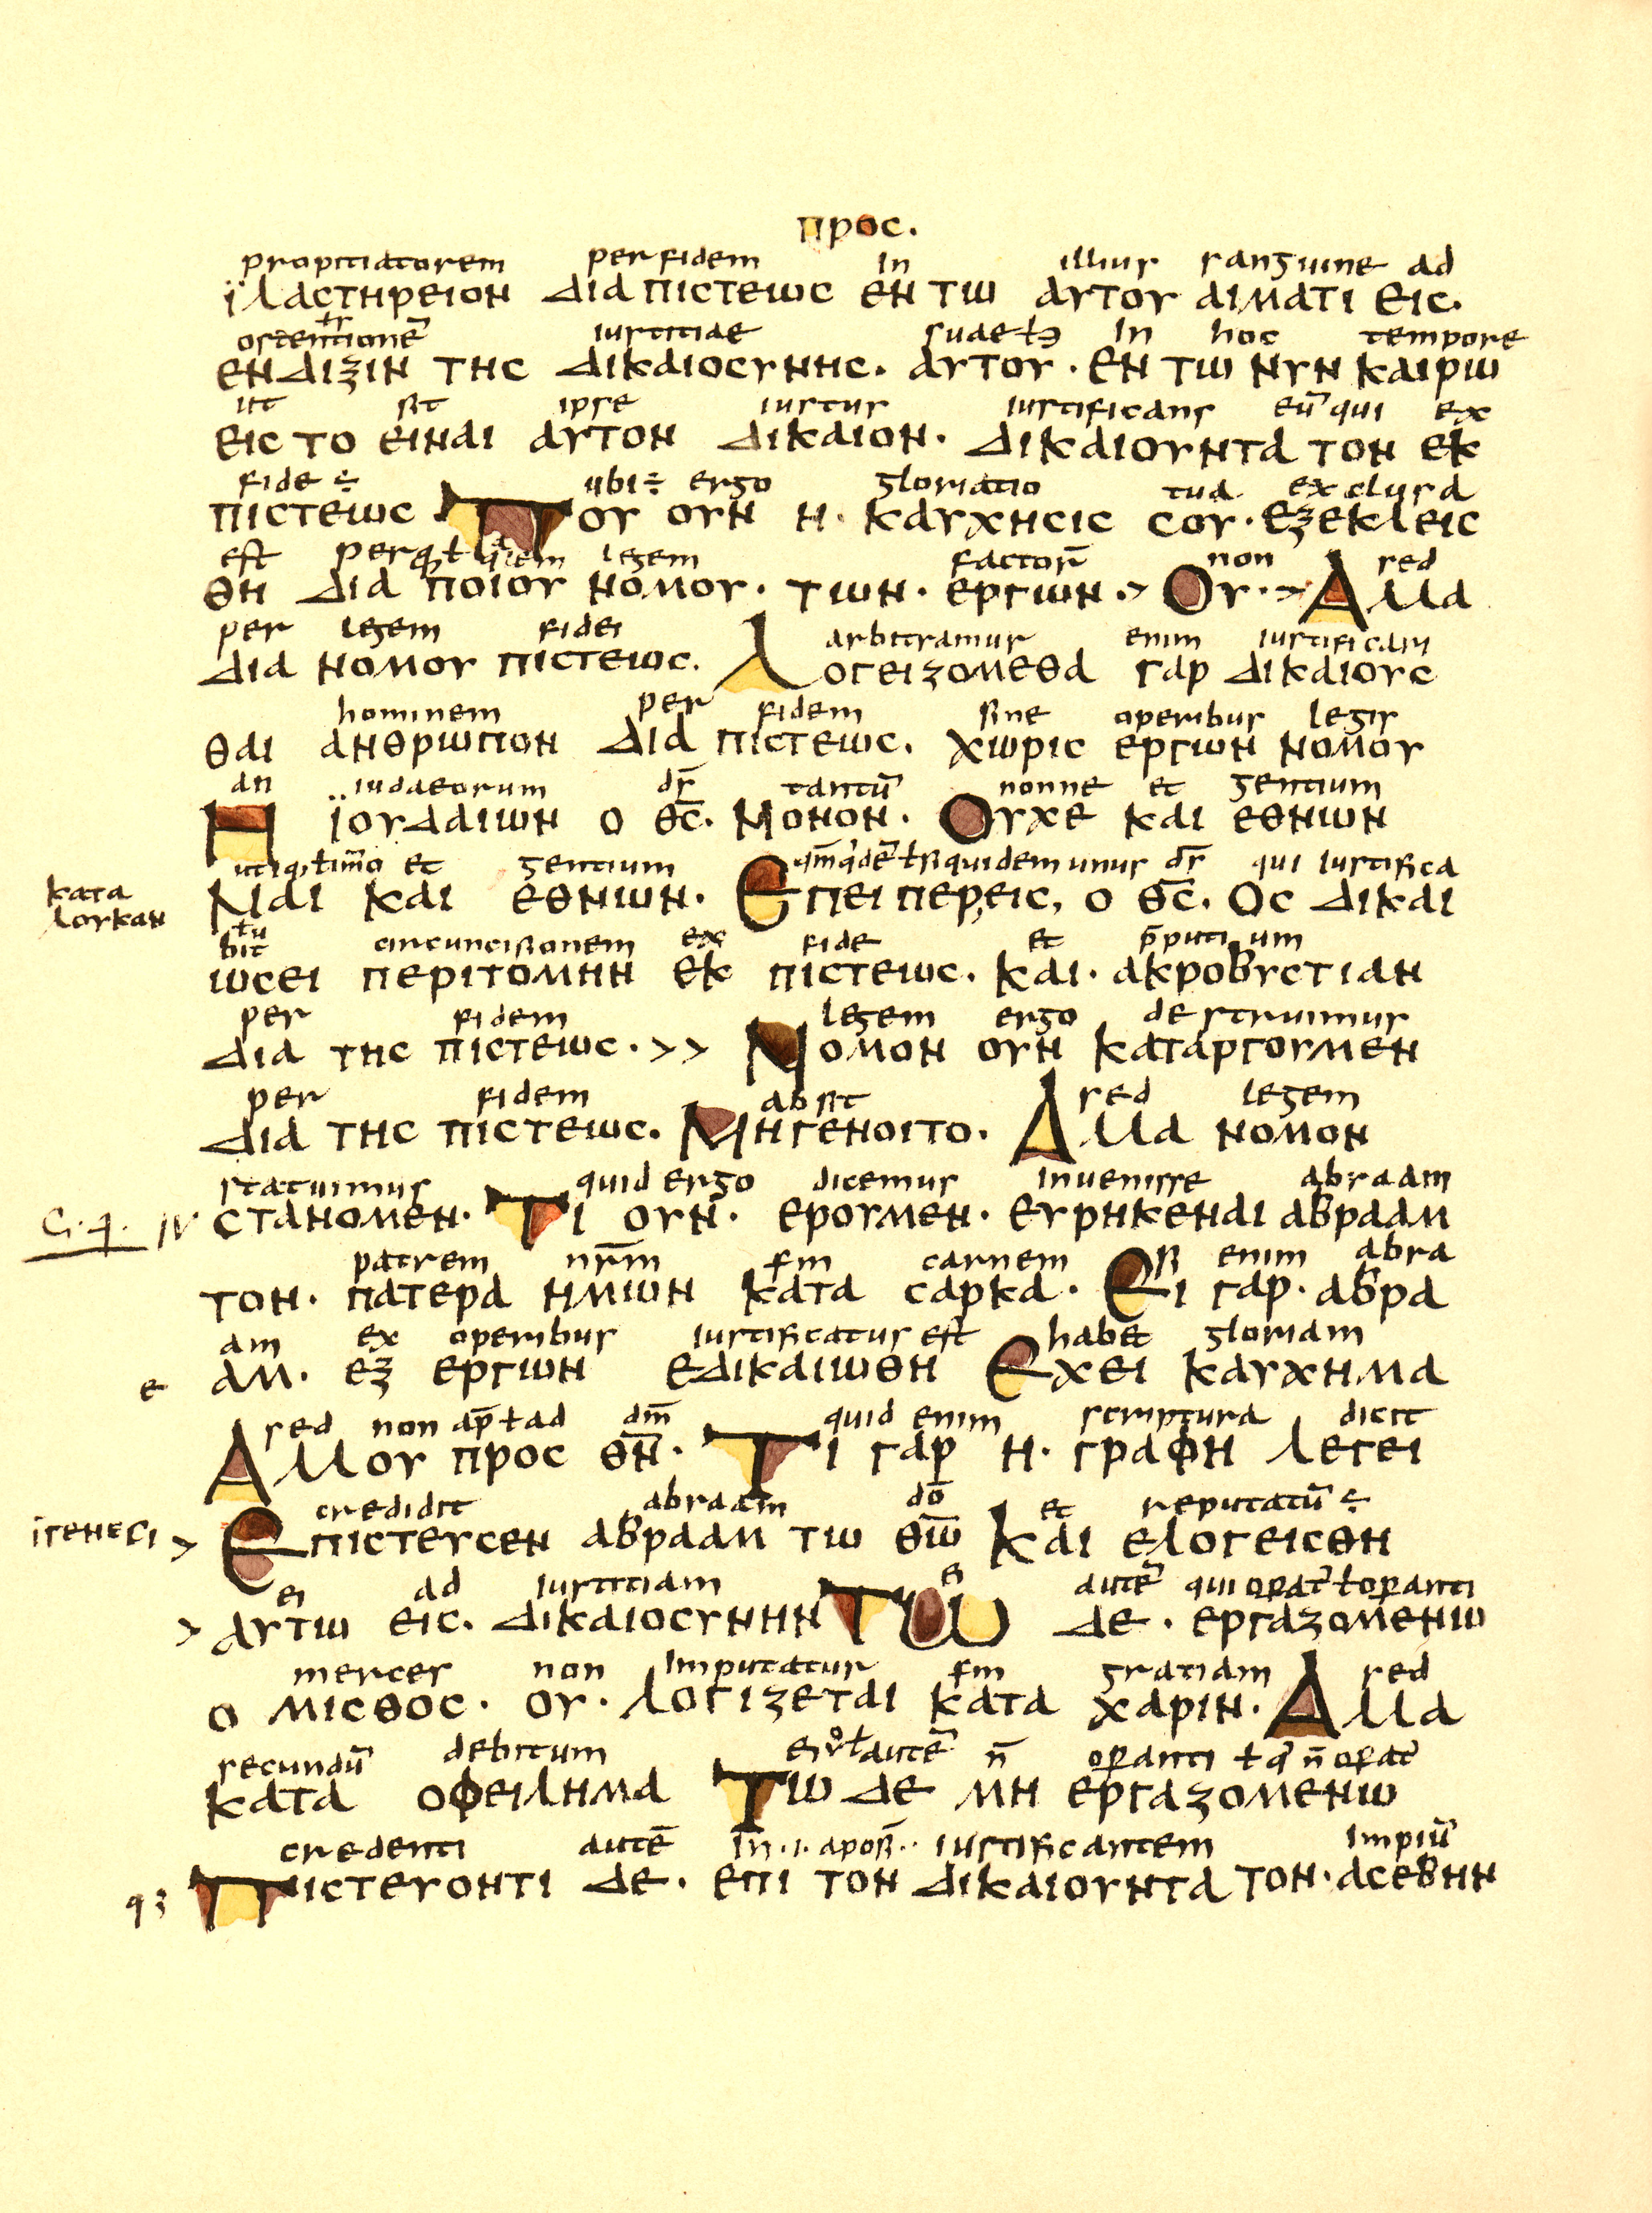 προς.
propitiatorem per fidem in illius sanguine ad
ϊλαστηρειον δια πιστεως εν τω αυτου αιματι εις.
ostentionē iustitiae suae ƚ in hoc tempore
ενδιξιν της δικαιοσυνης. αυτου · εν τω νυν καιρω
ut sit ipse iustus iustificans eū qui ex
εις το ειναι αυτον δικαιον. δικαιουντα τον εκ
fide ÷ ubi÷ ergo gloriatio tua exclusa
πιστεως · Που ουν η · καυχησις σου · εξεκλεις
est per legem factorū non sed
θη δια ποιου νομου · των · εργων ·> Ου ·> Αλλα
per legem fidei arbitramur enim iustificari
δια νομου πιστεως. Λογειζομεθα γαρ δικαιους
hominem per fidem sine operibus legis
θαι ανθρωπον δια πιστεως. χωρις εργων νομου
an iudaeorum d̄s tantū nonne et gentium
Η ϊουδαιων ο θ̅ς̅. Μονον · Ουχε και εθνιων
et gentium ƚ siquidem unus d̄s qui iustifica
Ναι και εθνιων. Επει περ,εις, ο θ̅ς̅. Ος δικαι
κατα λουκαν
bit circuncisionem ex fide et p̄puti um
ωσει περιτομην εκ πιστεως. και · ακροβυστιαν
per fidem legem ergo destruimus
δια της πιστεως ·>> Νομον ουν καταργουμεν
per fidem absit sed legem
δια της πιστεως. Μηγενοιτο. Αλλα νομον
statuimus quid ergo dicemus invenisse abraam
C. 4. IV στανομεν. Τι ουν · ερουμεν · ευρηκεναι αβρααμ
patrem nr̄m sm carnem si enim abra
τον · πατερα ημιων κατα σαρκα · Ει γαρ · αβρα
am ex operibus iustificatus est habet gloriam
ε αμ. εξ εργων εδικαιωθη Εχει καυχημα
sed non ap̄ ƚ ad dm̄ quid enim scriptura dicit
Αλλου προς θ̅ν̅. Τι γαρ η · γραφη λεγει
credidit abraam dō et reputatū ÷
ϊγενεσι > Επιστευσεν αβρααμ τω θ̅ω̅ και ελογεισθη
ei ad iustitiam ei autē qui operat̄ ƚ operanti
> αυτω εις. δικαιοσυνην Τω δε · εργαζομενω
merces non imputatur sm gratiam sed
ο μισθος · ου · λογιζεται κατα χαριν · Αλλα
secundū debitum ei ƚ autē n̄ operanti ƚ q n̄ operat̄
κατα οφειλημα Τω δε μη εργαζομενω
credenti autē in · i · apos̄ · iustificantem impiū
93 Πιστευοντι δε · επι τον δικαιουντα τον · ασεβην